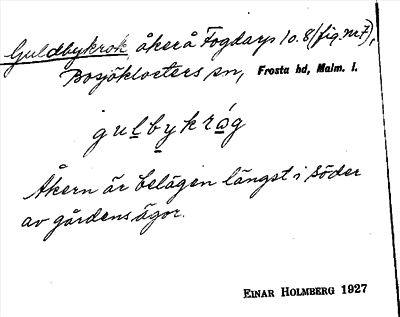 Guldbykrok, åkerå Fogdarp 10.8 (fig. nr 7),
Bosjöklosters sn, Frosta hd, Malm. l.
gulbykróg
Åkern är belägen längst i söder
av gårdens ägor.
EINAR HOLMBERG 1927